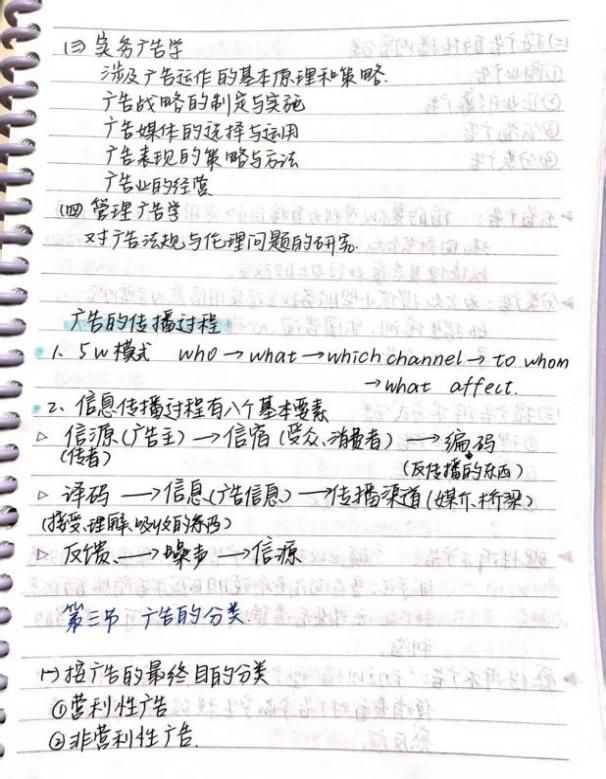 (三) 实务广告学
涉及广告运作的基本原理和策略.
广告战略的制定与实施
广告媒体的选择与运用
广告表现的策略与方法
广告业的经营
(四) 管理广告学
对广告法规与伦理问题的研究.
广告的传播过程
1. 5w模式 who → what → which channel → to whom
→ what affect.
2. 信息传播过程有八个基本要素
▷ 信源(广告主) → 信宿(受众、消费者) → 编码
(传者) (反传播的东西)
▷ 译码 → 信息(广告信息) → 传播渠道(媒介、桥梁)
(接受、理解、吸收的东西)
▷ 反馈 → 噪声 → 信源
第三节 广告的分类.
(一) 按广告的最终目的分类
①营利性广告
②非营利性广告.